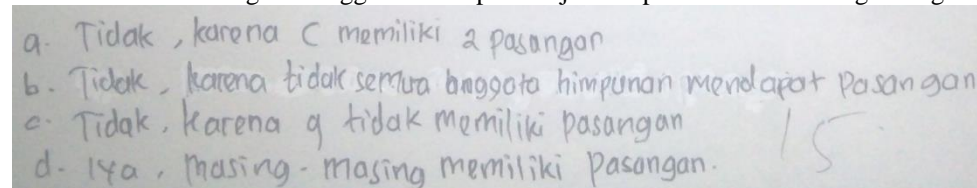 a. Tidak, karena C memiliki 2 pasangan
b. Tidak, karena tidak semua anggota himpunan mendapat pasangan
c. Tidak, karena q tidak memiliki pasangan
15
d. Iya, masing-masing memiliki pasangan.